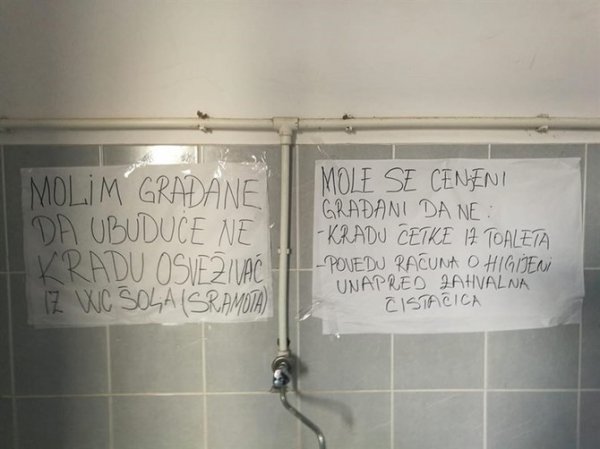 MOLIM GRAĐANE
DA UBUDUĆE NE
KRADU OSVEŽIVAČ
IZ WC ŠOLJA (SRAMOTA)
MOLE SE CENJENI
GRAĐANI DA NE:
- KRADU ČETKE IZ TOALETA
- POVEDU RAČUNA O HIGIJENI
UNAPRED ZAHVALNA
ČISTAČICA